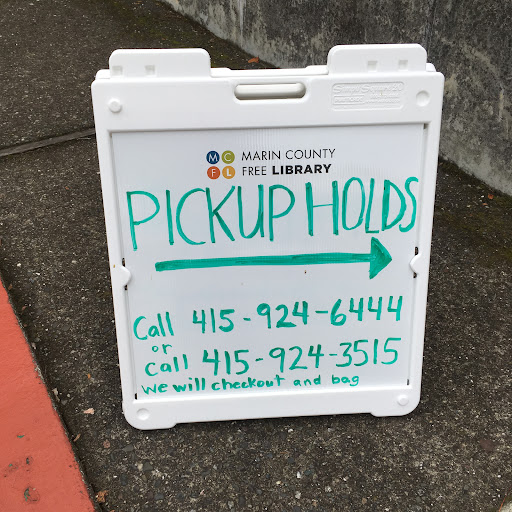 MC
FL
MARIN COUNTY
FREE LIBRARY
PICKUP HOLDS
Call 415-924-6444
or
call 415-924-3515
we will checkout and bag